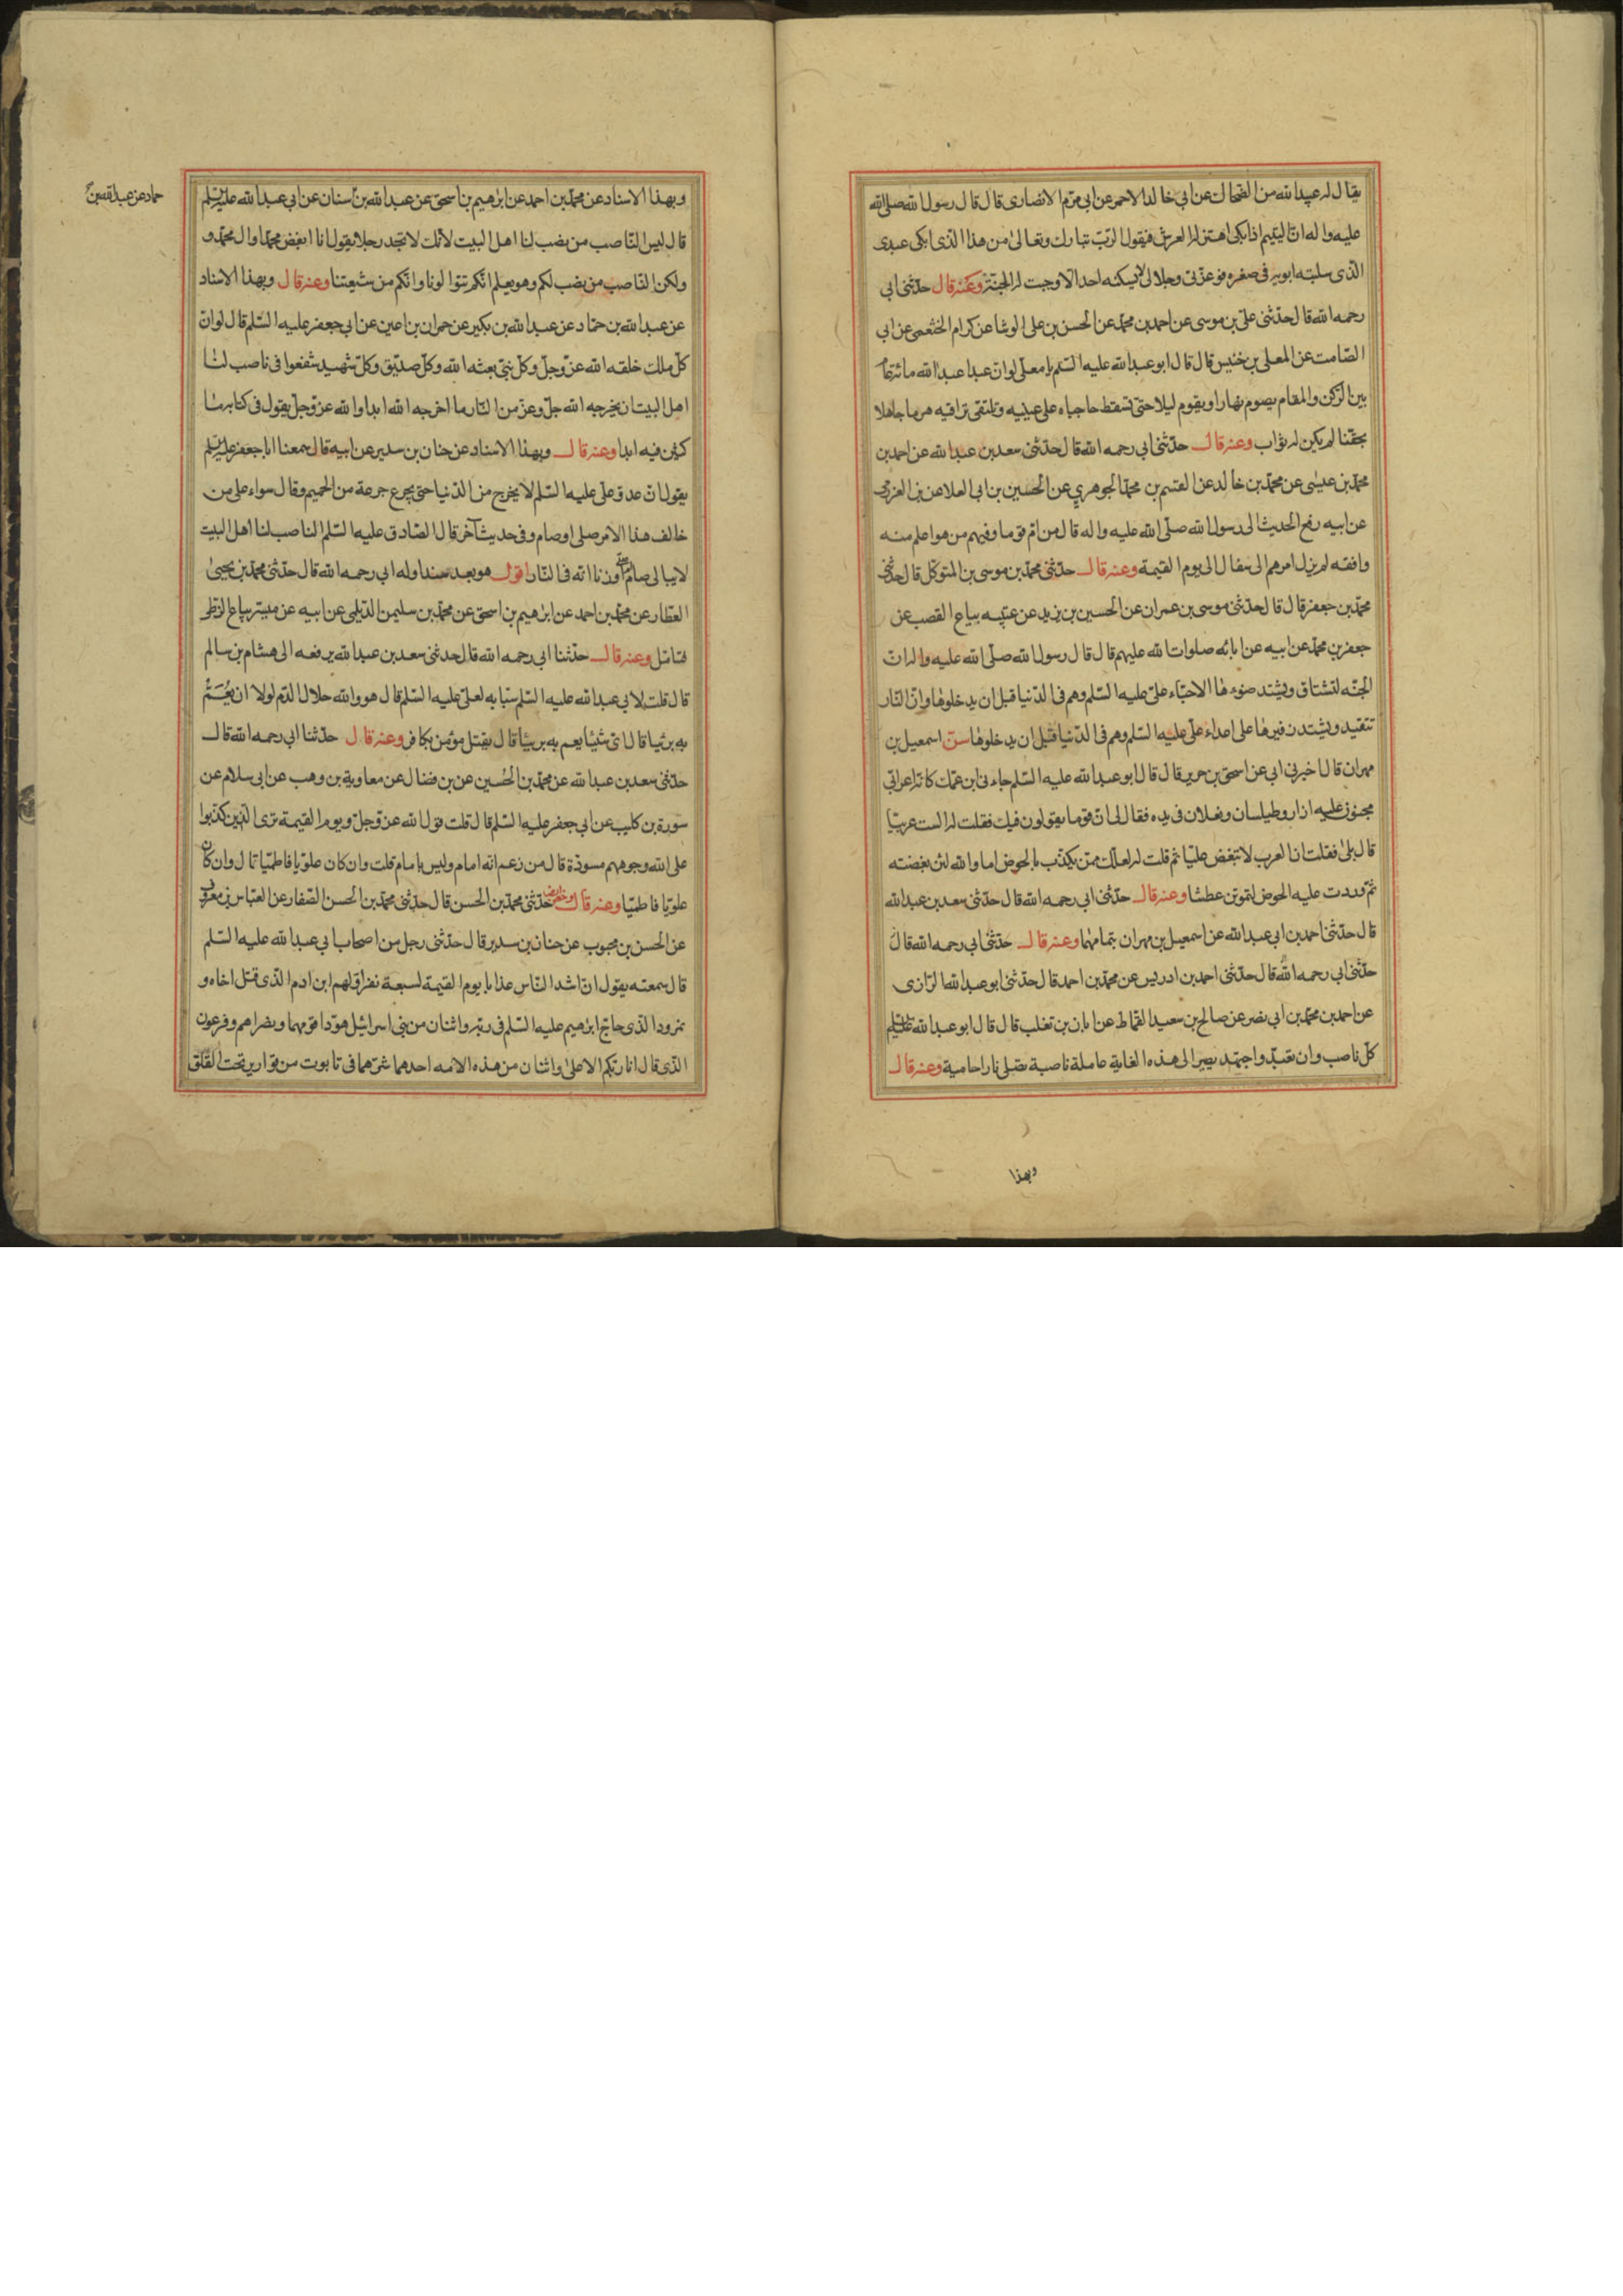 يقال له عبدالله من الضحاك عن ابي خالد الاحمر عن ابي مريم الانصاری قال قال رسول الله صلی الله
عليه واله ان اليتيم اذا بكی اهتز له العرش فيقول الرب تبارك وتعالی من هذا الذی ابكی عبدی
الذی سلبته ابويه فی صغره فوعزتی وجلالی لا يسكنه احد الا وجبت له الجنة وعنه قال حدثنی ابی
رحمه الله قال حدثنی علی بن موسی عن احمد بن محمد عن الحسن بن علی الوشا عن كرام الخثعمی عن ابی
الصامت عن المعلی بن خنيس قال قال ابو عبدالله عليه السلم يا معلی لو ان عبدا عبدالله مائة عام
بين الركن والمقام يصوم نهارا ويقوم ليلا حتی تسقط حاجباه علی عينيه وتلتقی تراقيه هرما جاهلا
بحقنا لم يكن له ثواب وعنه قال حدثنی ابی رحمه الله قال حدثنی سعد بن عبدالله عن احمد بن
محمد بن عيسی عن محمد بن خالد عن القسم بن محمد الجوهري عن الحسين بن ابی العلا عن بن العزرمی
عن ابيه رفع الحديث الی رسول الله صلی الله عليه واله قال من ام قوما وفيهم من هو اعلم منه
وافقه لم يزل امرهم الی سفال الی يوم القيمة وعنه قال حدثنی محمد بن موسی بن المتوكل قال حدثنی
محمد بن جعفر قال قال حدثنی موسی بن عمران عن الحسين بن يزيد عن عتيبه بياع القصب عن
جعفر بن محمد عن ابيه عن ابائه صلوات الله عليهم قال قال رسول الله صلی الله عليه واله ان
الجنه لتشتاق ويشتد ضوءها الاحباء علی عليه السلم وهم فی الدنيا قبل ان يدخلوها وان النار
تتغيد ويشتد زفيرها علی اعداء علی عليه السلم وهم فی الدنيا قبل ان يدخلوها سن اسمعيل بن
مهران قال اخبرنی ابی عن اسحق بن جرير قال قال ابو عبدالله عليه السلم جاءنی ابن عمك كانه اعرابی
مجنون عليه ازار وطيلسان ونعلان فی يده فقال لی ان قوما يقولون فيك فقلت له الست عربيا
قال بلی فقلت ان العرب لا تبغض عليا ثم قلت له لعلك ممن يكذب بالحوض اما والله لئن بغضته
ثم وردت عليه الحوض لتموتن عطشا وعنه قال حدثنی ابی رحمه الله قال حدثنی سعد بن عبدالله
قال حدثنی احمد بن ابی عبدالله عن اسمعيل بن مهران بتمامها وعنه قال حدثنی ابی رحمه الله قال
حدثنی ابی رحمه الله قال حدثنی احمد بن ادريس عن محمد بن احمد قال حدثنی ابو عبدالله الرازی
عن احمد بن محمد بن ابی نصر عن صالح بن سعيد القماط عن ابان بن تغلب قال قال ابو عبدالله عليه السلم
كل ناصب وان تعبد واجتهد يصير الی هذه الغاية عاملة ناصبة تصلی نارا حامية وعنه قال
وبهذا
وبهذا الاسناد عن محمد بن احمد عن ابرهيم بن اسحق عن عبدالله بن سنان عن ابی عبدالله عليه السلم
حماد عن عبدالله بن
قال ليس الناصب من نصب لنا اهل البيت لانك لا تجد رجلا يقول انا ابغض محمدا وال محمد و
ولكن الناصب من نصب لكم وهو يعلم انكم تتوالونا وانكم من شيعتنا وعنه قال وبهذا الاسناد
عن عبدالله بن حماد عن عبدالله بن بكير عن حمران بن اعين عن ابی جعفر عليه السلم قال لو ان
كل ملك خلقه الله عز وجل وكل نبی بعثه الله وكل صديق وكل شهيد شفعوا فی ناصب لنا
اهل البيت ان يخرجه الله جل وعز من النار ما اخرجه الله ابدا والله عز وجل يقول فی كتابه ما
كثين فيه ابدا وعنه قال وبهذا الاسناد عن حنان بن سدير عن ابيه قال سمعنا ابا جعفر عليه السلم
يقول ان عدو علی عليه السلم لا يخرج من الدنيا حتی يجرع جرعة من الحميم وقال سواء علی من
خالف هذا الامر صلی او صام وفی حديث آخر قال الصادق عليه السلم الناصب لنا اهل البيت
لا يبالی صام ام صلی او زنا انه فی النار اقول هو بعد سند اوله ابی رحمه الله قال حدثنی محمد بن يحيی
العطار عن محمد بن احمد عن ابرهيم بن اسحق عن محمد بن سليمن الديلمی عن ابيه عن ميسر بياع الزطی
فتامل وعنه قال حدثنا ابی رحمه الله قال حدثنی سعد بن عبدالله يرفعه الی هشام بن سالم
قال قلت لابی عبدالله عليه السلم سبابه لعلی عليه السلم قال هو والله حلال الدم لولا ان يعم
به بريا قال ای شیء يعم به بريئا قال يقتل مؤمن بكافر وعنه قال حدثنا ابی رحمه الله قال
حدثنی سعد بن عبدالله عن محمد بن الحسين عن بن فضال عن معاوية بن وهب عن ابی سلام عن
سورة بن كليب عن ابی جعفر عليه السلم قال قلت قول الله عز وجل ويوم القيمة تری الذين كذبوا
علی الله وجوههم مسودة قال من زعم انه امام وليس بامام قلت وان كان علويا فاطميا قال وان كان
علويا فاطميا وعنه قال حدثنی محمد بن الحسن قال حدثنی محمد بن الحسن الصفار عن العباس بن معروف
عن الحسن بن محبوب عن حنان بن سدير قال حدثنی رجل من اصحاب ابی عبدالله عليه السلم
قال سمعته يقول ان اشد الناس عذابا يوم القيمة لسبعة نفر اولهم ابن ادم الذی قتل اخاه و
نمرود الذی حاج ابرهيم عليه السلم فی ربه واثنان من بنی اسرائيل هودا قومهما ونصراهم وفرعون
الذی قال انا ربكم الاعلی واثنان من هذه الامه احدهما شرهما فی تابوت من قوارير تحت الفلق